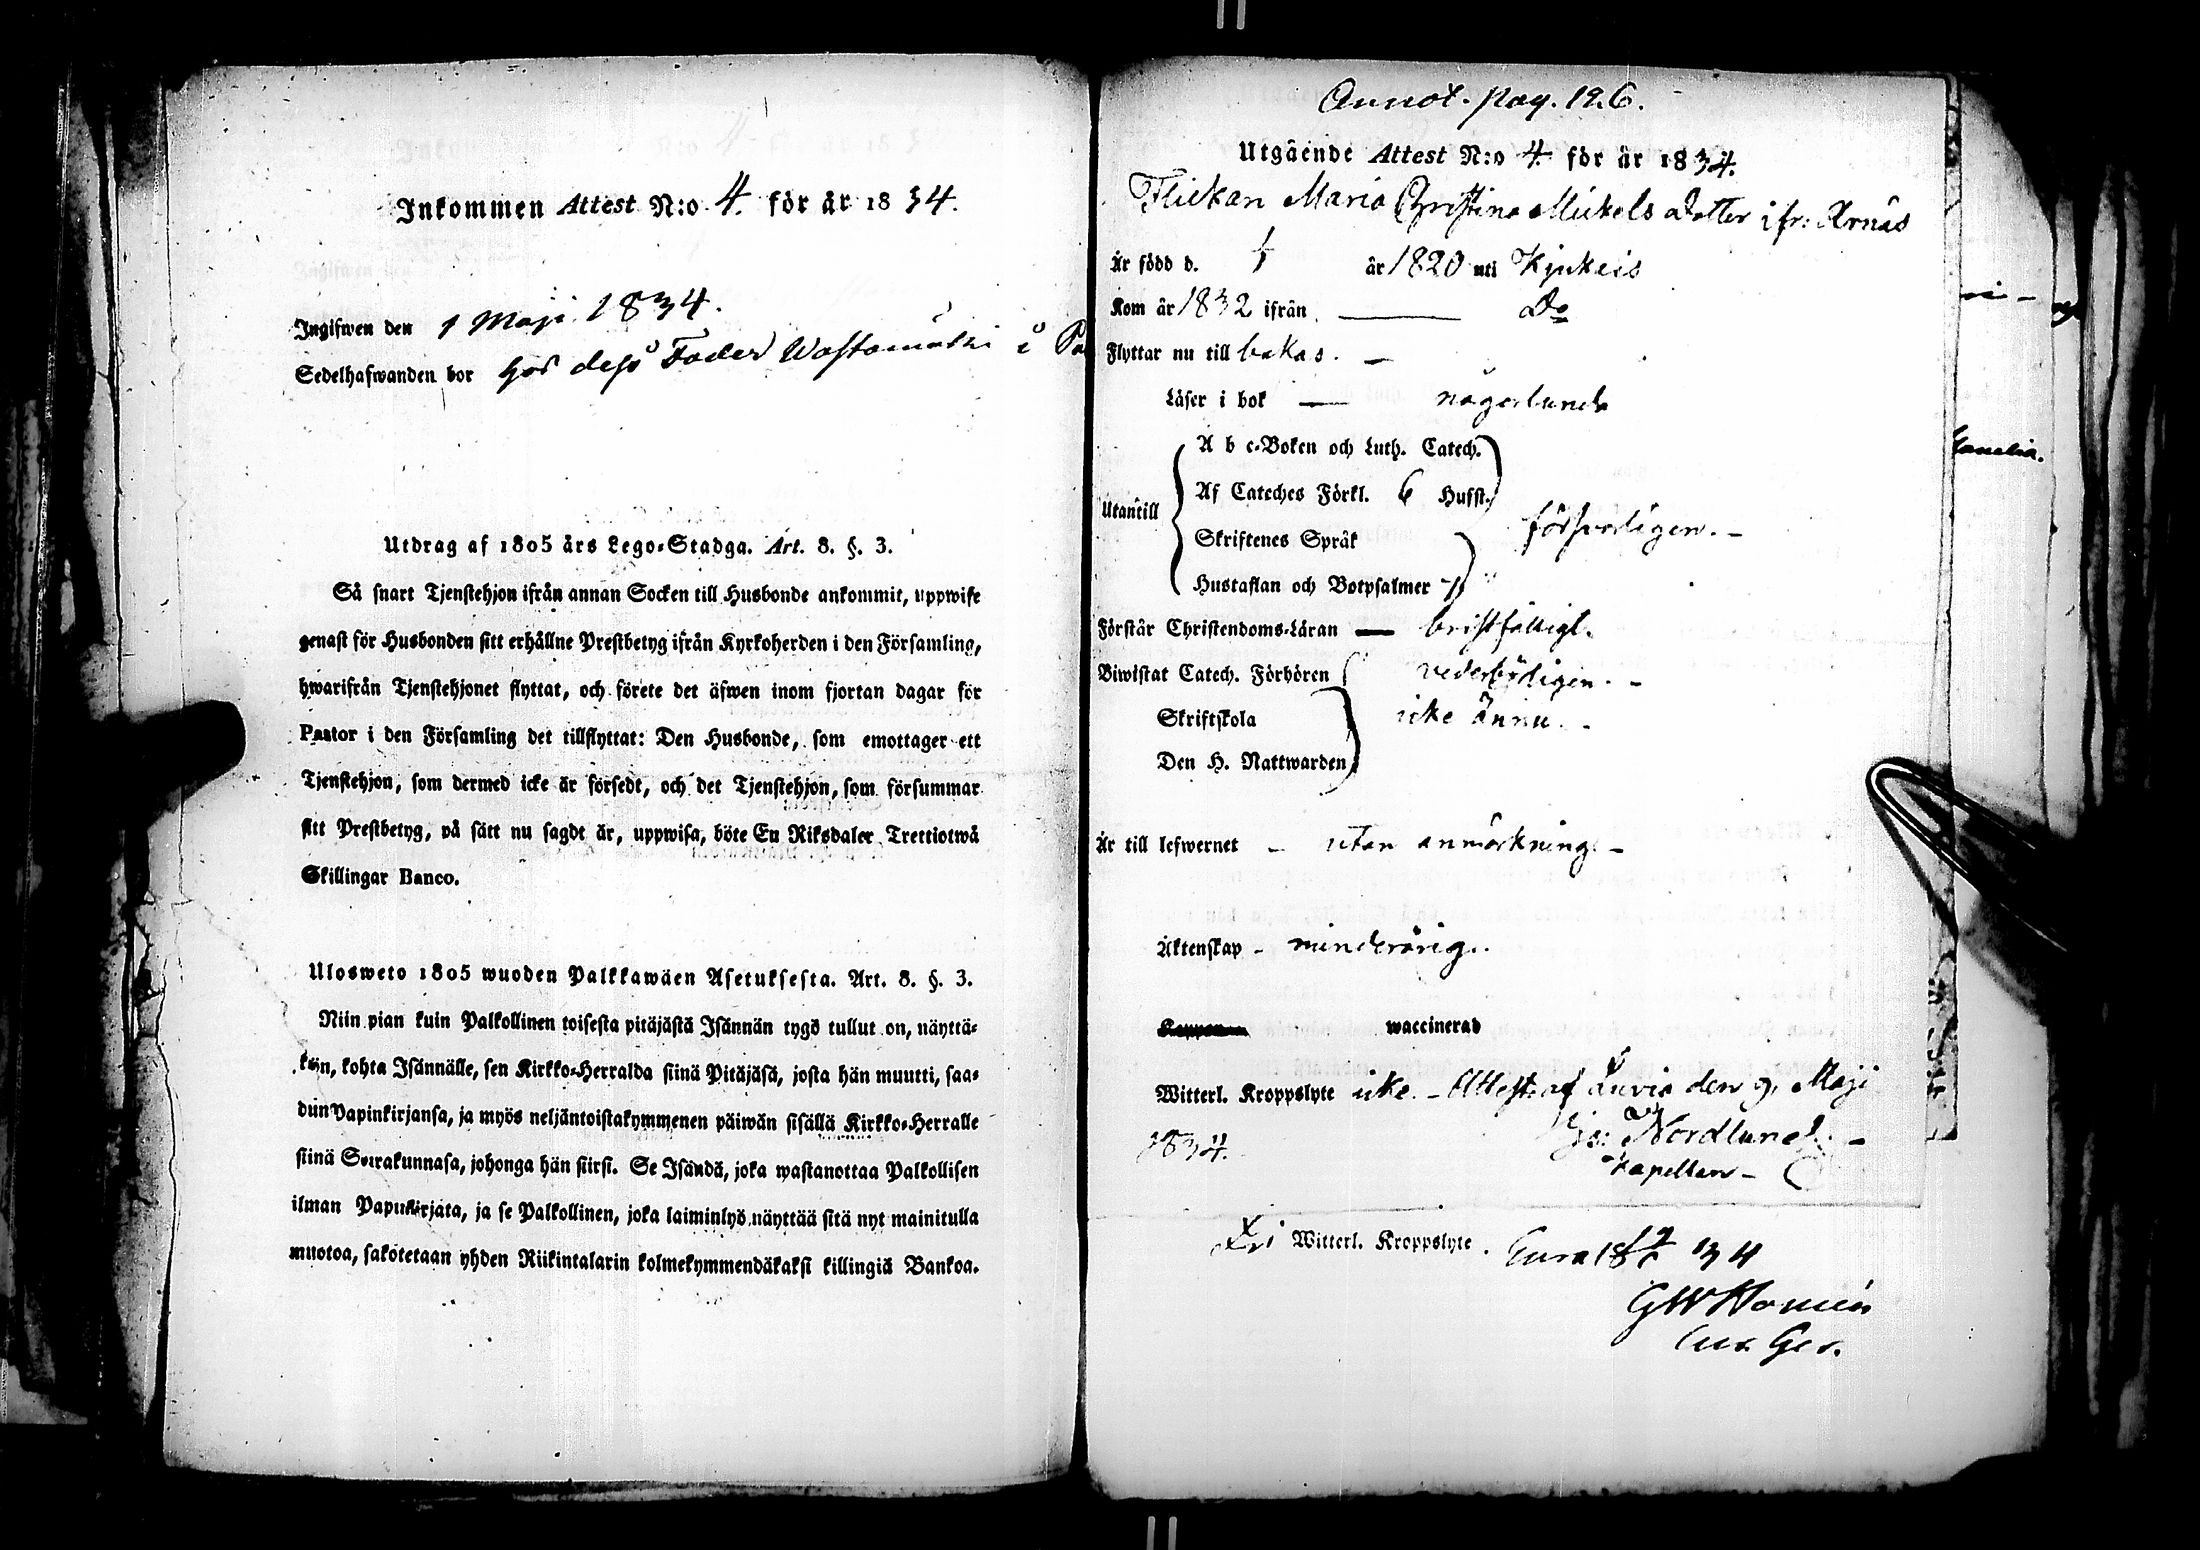 Inkommen Attest N:o 4. för år 1834.
Ingifwen den 1 Maji 1834.
Sedelhafwanden bor hos dess Fader i
Utdrag af 1805 års Lego-Stadga. Art. 8. §. 3.
Så snart Tjenstehjon ifrån annan Socken till Husbonde ankommit, uppwise
genast för Husbonden sitt erhållne Prestbetyg ifrån Kyrkoherden i den Församling,
hwarifrån Tjenstehjonet flyttat, och förete det äfwen inom fjortan dagar för
Pastor i den Församling det tillflyttat: Den Husbonde, som emottager ett
Tjenstehjon, som dermed icke är försedt, och det Tjenstehjon, som försummar
sitt Prestbetyg, på sätt nu sagdt är, uppwisa, böte En Riksdaler Trettiotwå
Skillingar Banco.
Ulosweto 1805 wuoden Palkkawäen Asetuksesta. Art. 8. §. 3.
Niin pian kuin Palkollinen toisesta pitäjästä Isännän tygö tullut on, näyttä-
kön, kohta Isännälle, sen Kirkko-Herralda siinä Pitäjäsä, josta hän muutti, saa-
dun Papinkirjansa, ja myös neljäntoistakymmenen päiwän sisällä Kirkko-Herralle
siinä Seurakunnasa, johonga hän siirsi. Se Isändä, joka wastanottaa Palkollisen
ilman Papinkirjata, ja se Palkollinen, joka laiminlyö näyttää sitä nyt mainitulla
muotoa, sakotetaan yhden Riikintalarin kolmekymmendäkaksi killingiä Bankoa.
Annot. pag. 196.
Utgående Attest N:o 4 för år 1834.
Flickan Maria Christina Mickels Dotter ifr: Arnäs
Är född d. år 1820 uti Kjukais
Kom år 1832 ifrån Do
Flyttar nu till bakas.
Läser i bok någorlunda
A b c-Boken och Luth. Catech.
Af Cateches Förkl. 6 Husst.
Utantill
försvarligen.
Skriftenes Språk
Hustaflan och Botpsalmer
Förstår Christendoms-Läran bristfälligt.
Biwistat Catech. Förhören vederbörligen.
Skriftskola icke ännu.
Den H. Nattwarden
Är till lefwernet utan anmärkning.
Äktenskap minderårig.
waccinerad
Witterl. Kroppslyte icke. Attest. af Luvia den 9, Maji
1834. Nordlund.
Kapellan
Fri Witterl. Kroppslyte. Eura 18 34